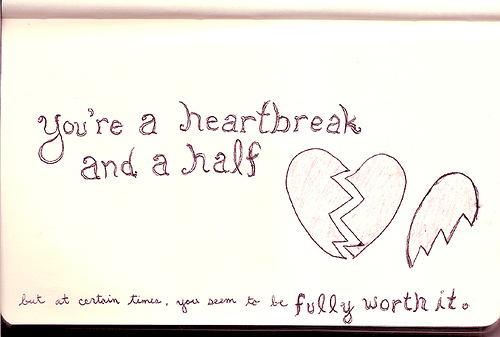 you're a heartbreak
and a half
but at certain times, you seem to be fully worth it.